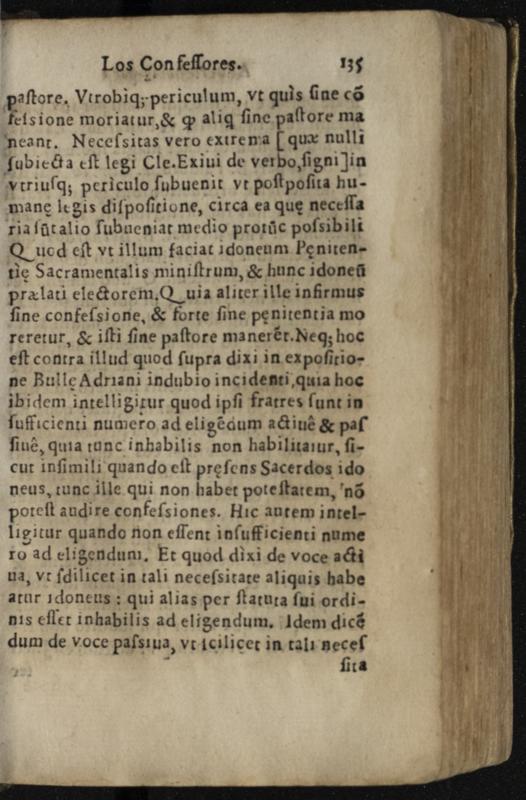 Los Confessores. 135
pastore. Vtrobiq; periculum, vt quis sine cõ
fessione moriatur, & ꝙ aliq sine pastore ma
neant. Necessitas vero extrema [quæ nulli
subiecta est legi Cle. Exiui de verbo, signi] in
vtriusq; periculo subuenit vt postposita hu-
manę legis dispositione, circa ea quę necessa
ria sũt alio subueniat medio protũc possibili
Quod est vt illum faciat idoneum Pęniten-
tię Sacramentalis ministrum, & hunc idoneũ
prælati electorem. Quia aliter ille infirmus
sine confessione, & forte sine pęnitentia mo
reretur, & isti sine pastore manerẽt. Neq; hoc
est contra illud quod supra dixi in expositio-
ne Bullę Adriani indubio incidenti, quia hoc
ibidem intelligitur quod ipsi fratres sunt in
sufficienti numero ad eligẽdum actiuê & pas
siuê, quia tunc inhabilis non habilitatur, si-
cut insimili quando est pręsens Sacerdos ido
neus, tunc ille qui non habet potestatem, nõ
potest audire confessiones. Hic autem intel-
ligitur quando non essent insufficienti nume
ro ad eligendum. Et quod dixi de voce acti
ua, vt sdilicet in tali necessitate aliquis habe
atur idoneus : qui alias per statuta sui ordi-
nis esset inhabilis ad eligendum. Idem dicẽ
dum de voce passiua, vt scilicet in tali neces
sita